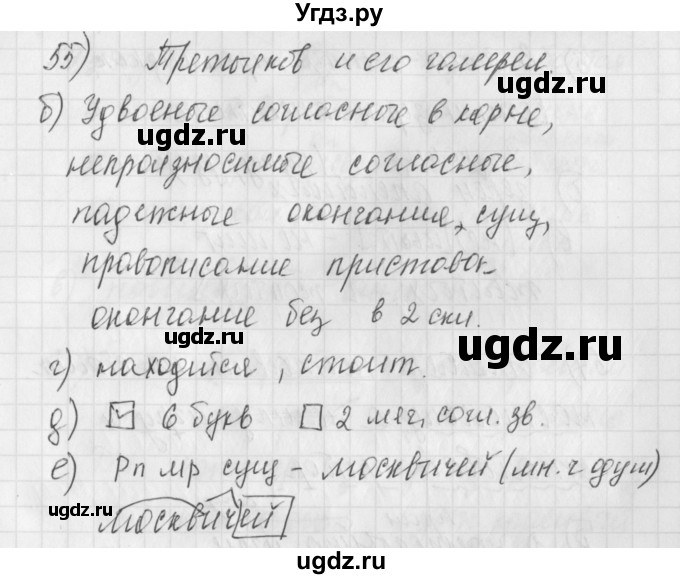 Угдз.ру
55) Третьяков и его галерея
ugdz.ru
ugdz.ru
б) Удвоеные согласные в корне,
ugdz.ru
ugdz.ru
непроизносимые согласные,
падежные окончания, сущ,
ugdz.ru
правописание приставок
ugdz.ru
окончание без в 2 скл.
ugdz.ru
г) находится, стоит.
ugdz.ru
д) 6 букв 2 мяг, согл. зв.
ugdz.ru
е) Рп мр сущ - москвичей (мн. ч одуш)
ugdz.ru
москвичей
ugdz.ru